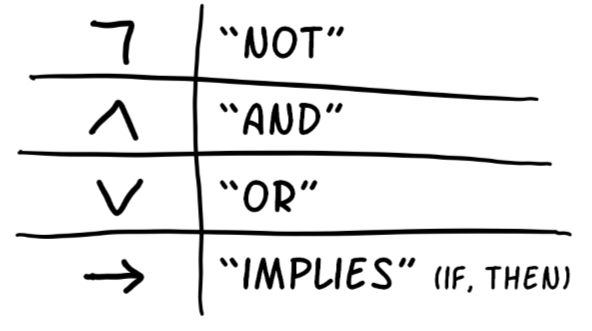 ¬ "NOT"
∧ "AND"
∨ "OR"
→ "IMPLIES" (IF, THEN)